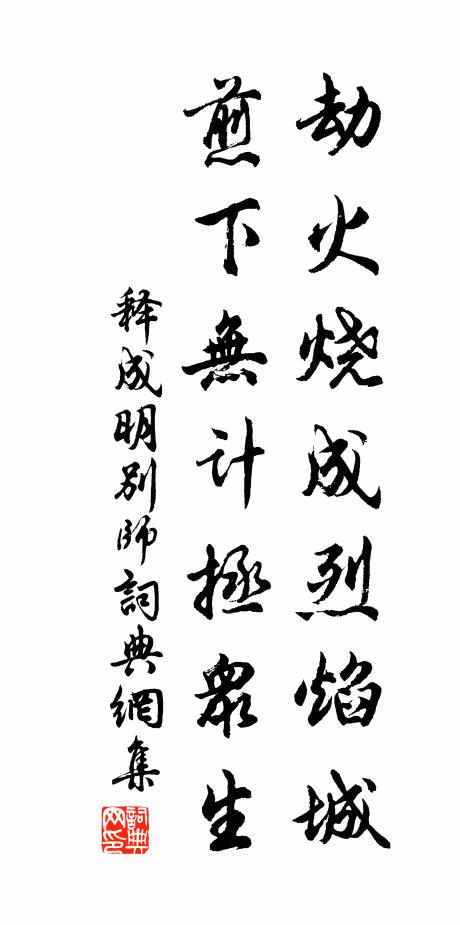 劫火烧成烈焰城
煎下無计拯眾生
释成明别师詞典網集
詞典网印